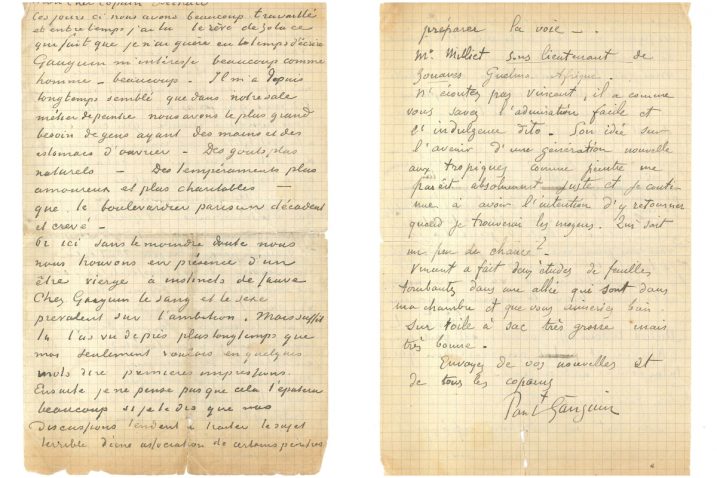 mon cher copain Bernard
Ces jours ci nous avons beaucoup travaillé
et entretemps j'ai lu le rêve de Zola ce
qui fait que je n'ai guère eu le temps d'écrire
Gauguin m'intéresse beaucoup comme
homme – beaucoup – Il m'a depuis
longtemps semblé que dans notre sale
métier de peintre nous avons le plus grand
besoin de gens ayant des mains et des
estomacs d'ouvrier – Des gouts plus
naturels – Des tempéraments plus
amoureux et plus charitables –
que le boulevardier parisien décadent
et crevé –
Or ici sans le moindre doute nous
nous trouvons en présence d'un
être vierge à instincts de sauvage
Chez Gauguin le sang et le sexe
prevalent sur l'ambition. Mais suffit
tu l'as vu de près plus longtemps que
moi seulement voulais en quelques
mots dire premieres impressions.
Ensuite je ne pense pas que cela t'épatera
beaucoup si je te dis que nos
Discussions tendent à traiter le sujet
terrible d'une association de certains peintres
préparer la voie –.
Mr Milliet sous lieutenant de
Zouaves Guelma Afrique.
N'écoutez pas Vincent, il a comme
vous savez l'admiration facile et
l'indulgence dito – Son idée sur
l'avenir d'une génération nouvelle
aux tropiques comme peintre me
paraît absolument juste et je conti-
nue à avoir l'intention d'y retourner
quand je trouverai les moyens. Qui sait
un peu de chance?
Vincent a fait deux études de feuilles
tombantes dans une allée qui sont dans
ma chambre et que vous aimeriez bien.
Sur toile à sac très grosse mais
très bonne.
Envoyez de vos nouvelles et
de tous les copains
Paul Gauguin